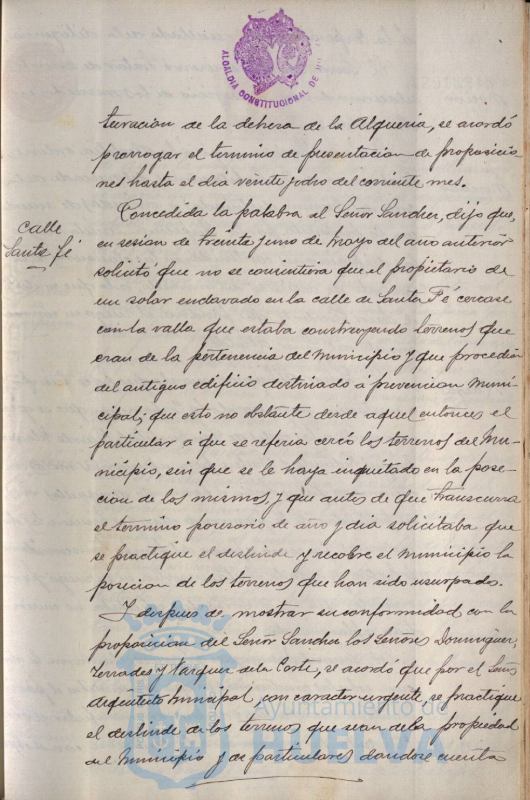 ALCALDIA CONSTITUCIONAL DE
turacion de la dehesa de la Alqueria, se acordó
prorrogar el termino de presentacion de proposicio
nes hasta el dia veinte y ocho del corriente mes.
Calle
Santa Fé
Concedida la palabra al Señor Sanchez, dijo que,
en sesion de treinta y uno de Mayo del año anterior
solicitó que no se consintiera que el propietario de
un solar enclavado en la calle de Santa Fé cercase
con la valla que estaba construyendo terrenos que
eran de la pertenencia del Municipio y que procedian
del antiguo edificio destinado á prevencion Muni-
cipal; que esto no obstante desde aquel entonces el
particular á que se referia cercó los terrenos del Mu-
nicipio, sin que se le haya inquietado en la pose-
cion de los mismos, y que antes de que transcurra
el termino posesorio de año y dia solicitaba que
se practique el deslinde y recobre el Municipio la
posicion de los terrenos que han sido usurpados.
Y despues de mostrar su conformidad con la
proposicion del Señor Sanchez los Señores Dominguez,
Terrades y Vazquez de la Corte, se acordó que por el Señor
Arquitecto Municipal, con caracter urgente, se practique
el deslinde de los terrenos que sean de la propiedad
del Municipio y de particulares dandose cuenta
Ayuntamiento de
HUELVA